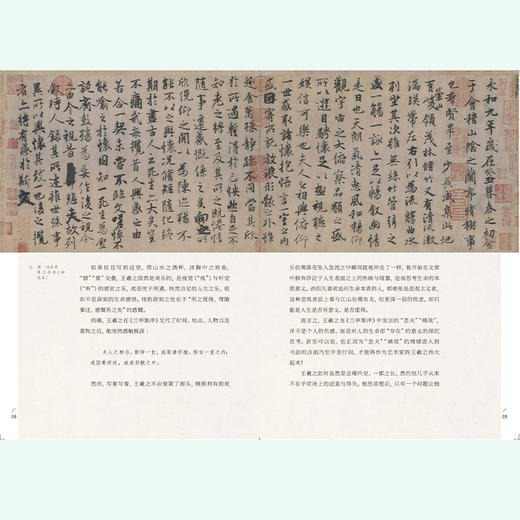 永和九年歲在癸丑暮春之初會
于會稽山陰之蘭亭脩稧事
也羣賢畢至少長咸集此地
有崇山峻領茂林脩竹又有清流激
湍暎帶左右引以為流觴曲水
列坐其次雖無絲竹管弦之
盛一觴一詠亦足以暢敘幽情
是日也天朗氣清惠風和暢仰
觀宇宙之大俯察品類之盛
所以遊目騁懷足以極視聽之
娛信可樂也夫人之相與俯仰
一世或取諸懷抱悟言一室之內
或因寄所託放浪形骸之外雖
趣舍萬殊靜躁不同當其欣
於所遇暫得於己怏然自足不
知老之將至及其所之既惓情
隨事遷感慨係之矣向之所
欣俛仰之間以為陳迹猶不
能不以之興懷況脩短隨化終
期於盡古人云死生亦大矣豈
不痛哉每攬昔人興感之由
若合一契未嘗不臨文嗟悼不
能喻之於懷固知一死生為虛
誕齊彭殤為妄作後之視今
亦由今之視昔悲夫故列
敘時人錄其所述雖世殊事
異所以興懷其致一也後之攬
者亦將有感於斯文
如果仅仅写到这里，借山水之清新，法
“骋”“景”交叠，王羲之固然是欢乐的，是视觉（“视”）与听觉
（“听”）的感官之乐，或是欣于所遇、快然自足的人生之乐，但
却不是深刻的生命感悟。他的深刻之处在于“所之既倦，情随
事迁，感慨系之矣”的感慨。
王羲之在《兰亭集序》交代了时间、地点、人物以及
景物之后，他突然感触极深：
夫人之相与，俯仰一世，或取诸怀抱，悟言一室之内；
或因寄所托，放浪形骸之外。
然而，写着写着，王羲之不由皱紧了眉头，刚刚拥有的欢
08
乐仿佛落花坠入急流之中瞬间就被冲走了一样，他开始在文章
中摒弃浮泛于人生表面之上的热闹与喧嚣，进而思考生命的本
来意义。
能是人生是否有意义、是否值得。
或者说，王羲之在《兰亭集序》中发出的“悲夫”“痛哉”，
并不是个人的伤感，而是对人的生命即“存在”的意义的深沉
思考，甚至可以说，也正因为“悲夫”“痛哉”的情绪进入到
书法的点画乃至字里行间，才使得作为艺术家的王羲之伟大
起来！
王羲之此时虽然是会稽内史、一郡之长，然而他几乎从来
不在乎官场上的进退与得失。他思前想后，只有一个问题让他
09